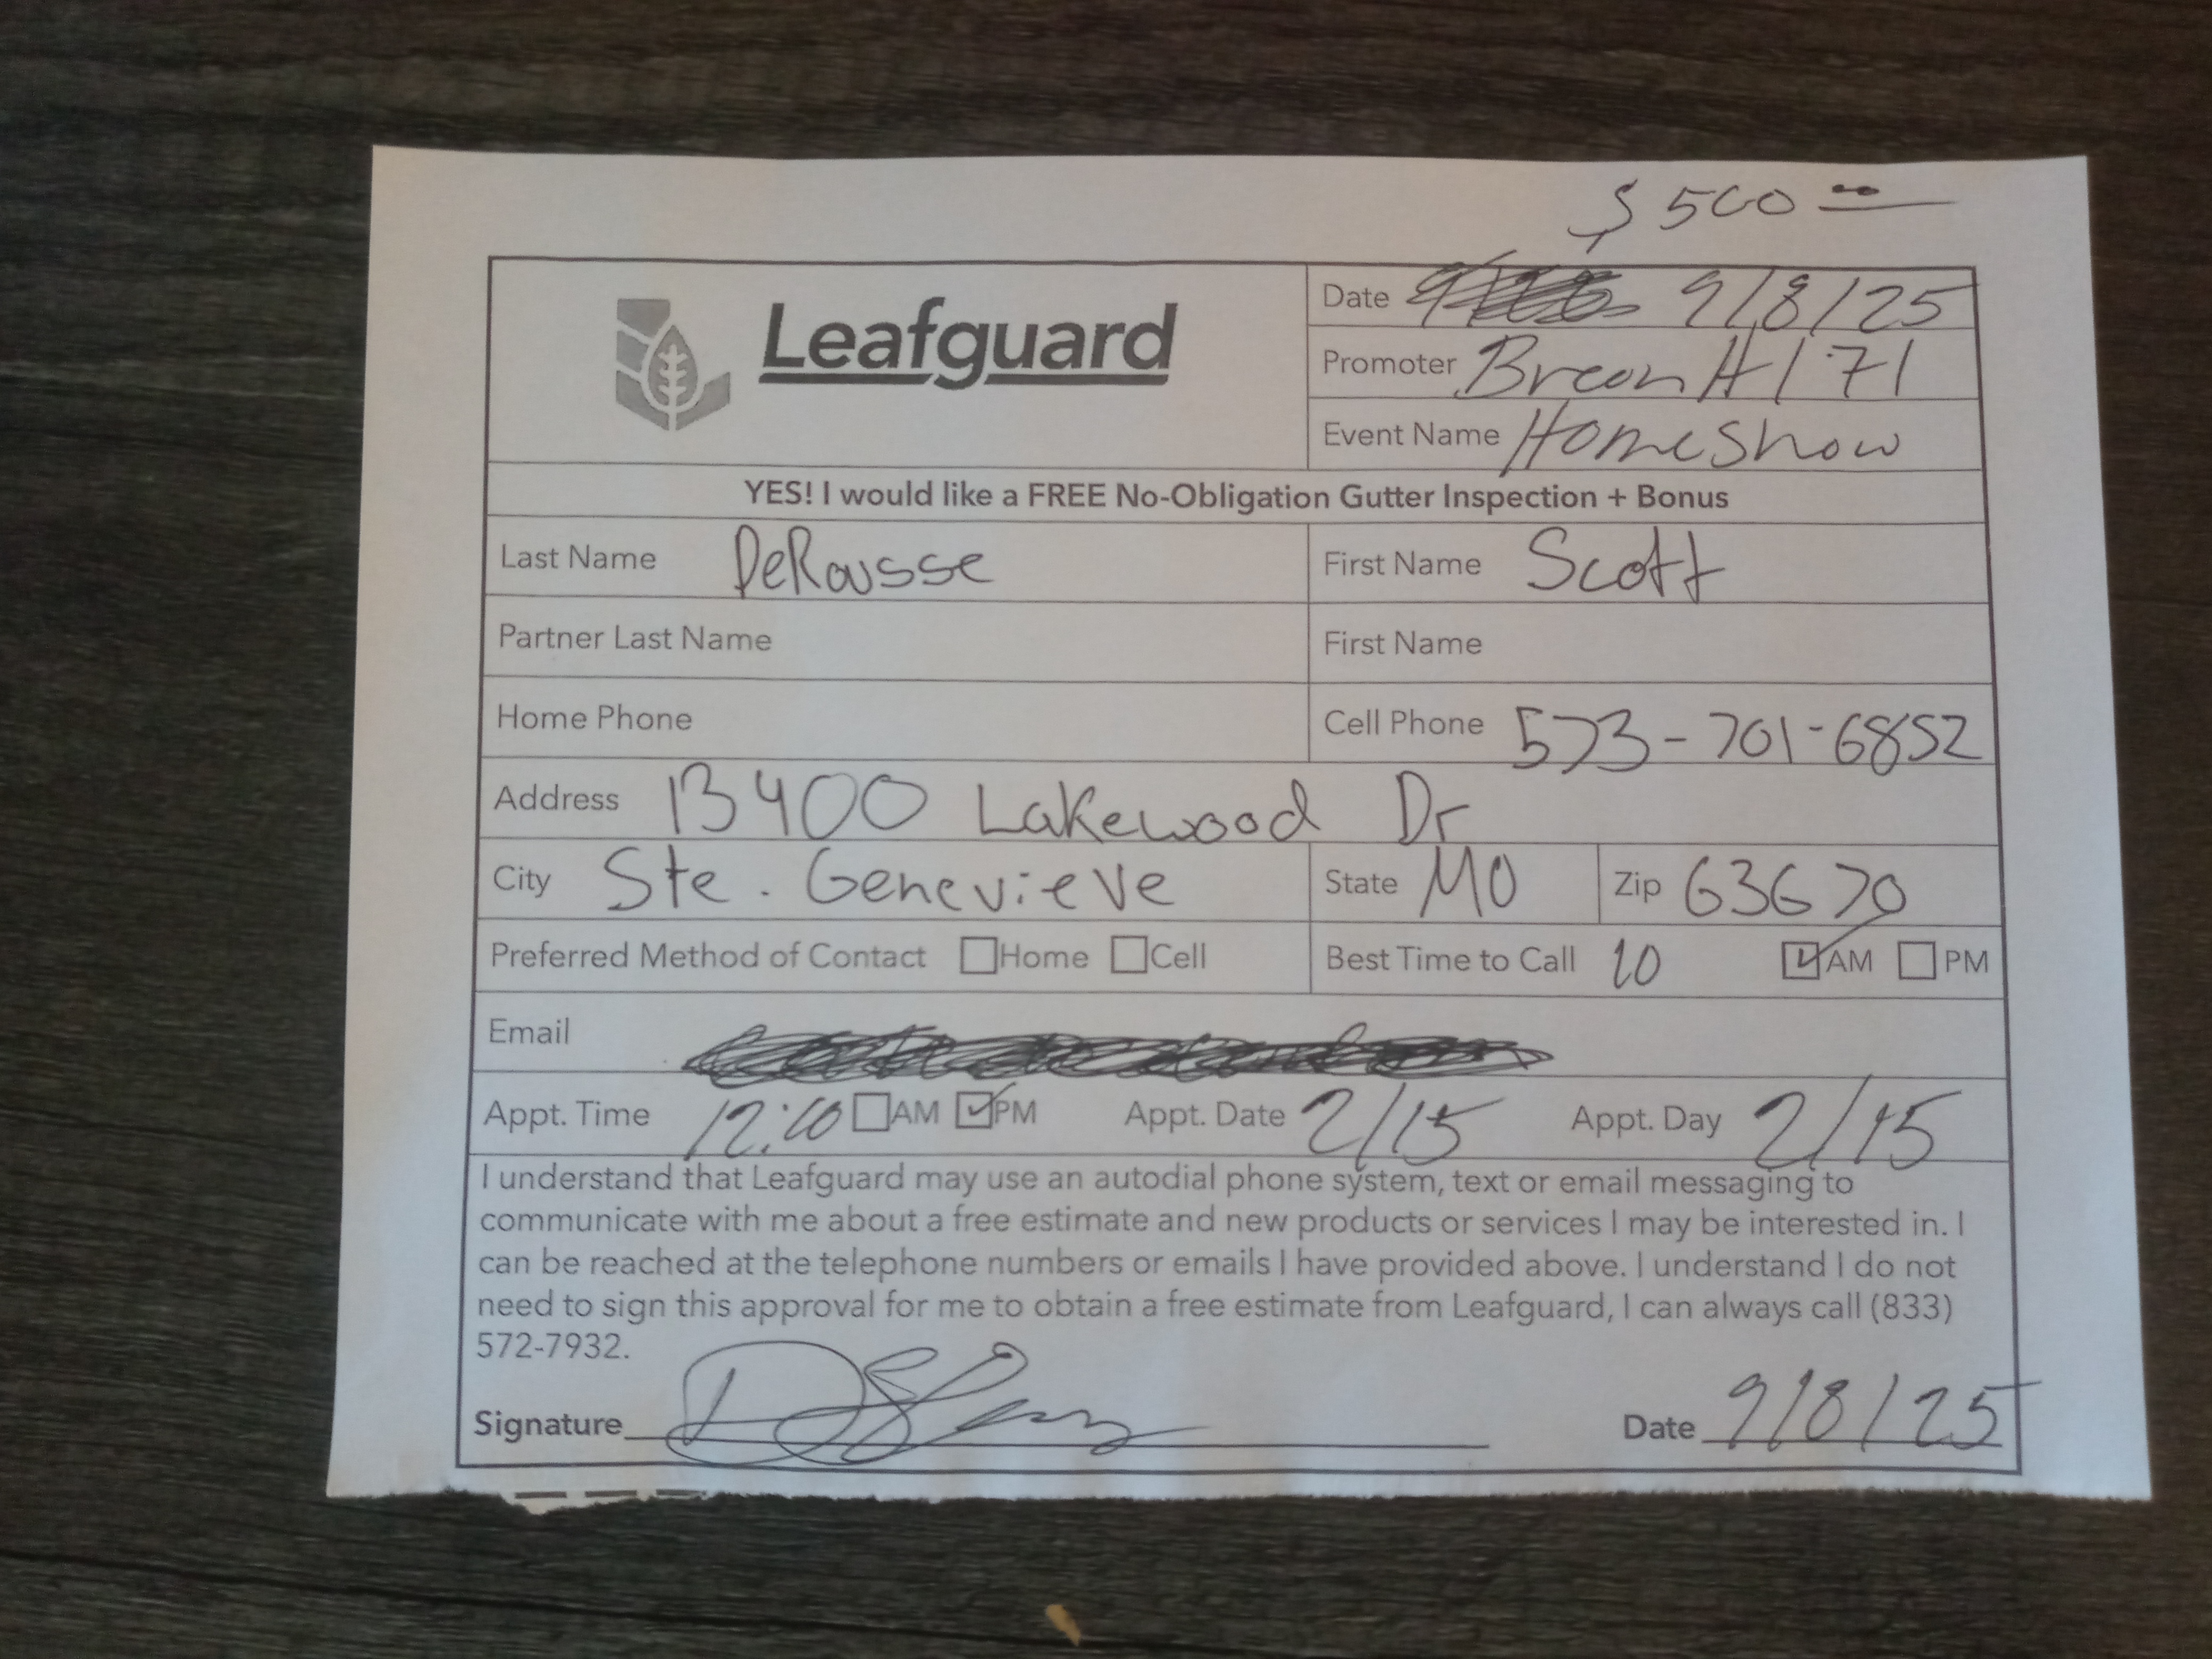 $ 500 00
Leafguard
Date 9/8/25
Promoter Breon H 171
Event Name Homeshow
YES! I would like a FREE No-Obligation Gutter Inspection + Bonus
Last Name DeRousse First Name Scott
Partner Last Name First Name
Home Phone Cell Phone 573-701-6852
Address 13400 Lakewood Dr
City Ste. Genevieve State MO Zip 63670
Preferred Method of Contact Home Cell Best Time to Call 10 AM PM
Email
Appt. Time AM PM Appt. Date 2/15 Appt. Day 2/15
I understand that Leafguard may use an autodial phone system, text or email messaging to
communicate with me about a free estimate and new products or services I may be interested in. I
can be reached at the telephone numbers or emails I have provided above. I understand I do not
need to sign this approval for me to obtain a free estimate from Leafguard, I can always call (833)
572-7932.
Signature Date 9/8/25